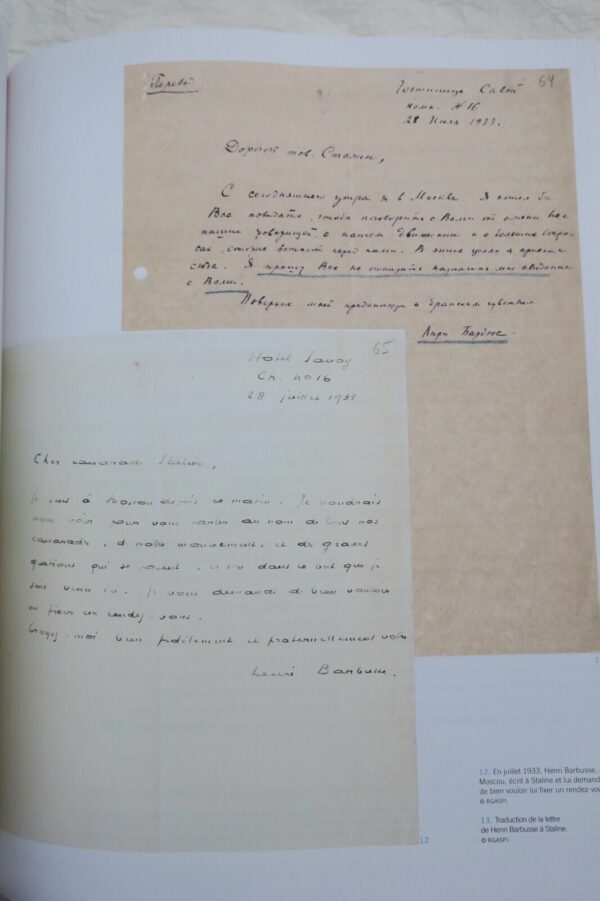 Перевод
64
Гостиница Савой
комн. № 16
28 Июля 1933.
Дорогой тов. Сталин,
С сегодняшнего утра я в Москве. Я хотел бы
Вас повидать, чтобы поговорить с Вами от имени всех
наших товарищей о нашем движении и о больших вопро-
сах, стоят перед нами. В этих целях я приехал
сюда. Я прошу Вас не отказать назначить мне свидание
с Вами.
Поверьте моей преданности и братским чувствам.
Анри Барбюс.
65
Hotel Savoy
Ch. no 16
28 juillet 1933
Cher camarade Staline,
Je suis à Moscou depuis ce matin. Je voudrais
vous voir pour vous parler au nom de tous nos
camarades, de notre mouvement, et des graves
questions qui se posent, et c'est dans ce but que je
suis venu ici. Je vous demande de bien vouloir
me fixer un rendez-vous.
Croyez-moi bien fidèlement et fraternellement votre
Henri Barbusse.
12
1
12. En juillet 1933, Henri Barbusse,
Moscou, écrit à Staline et lui demand
de bien vouloir lui fixer un rendez-vou
© RGASPI.
13. Traduction de la lettre
de Henri Barbusse à Staline.
© RGASPI.